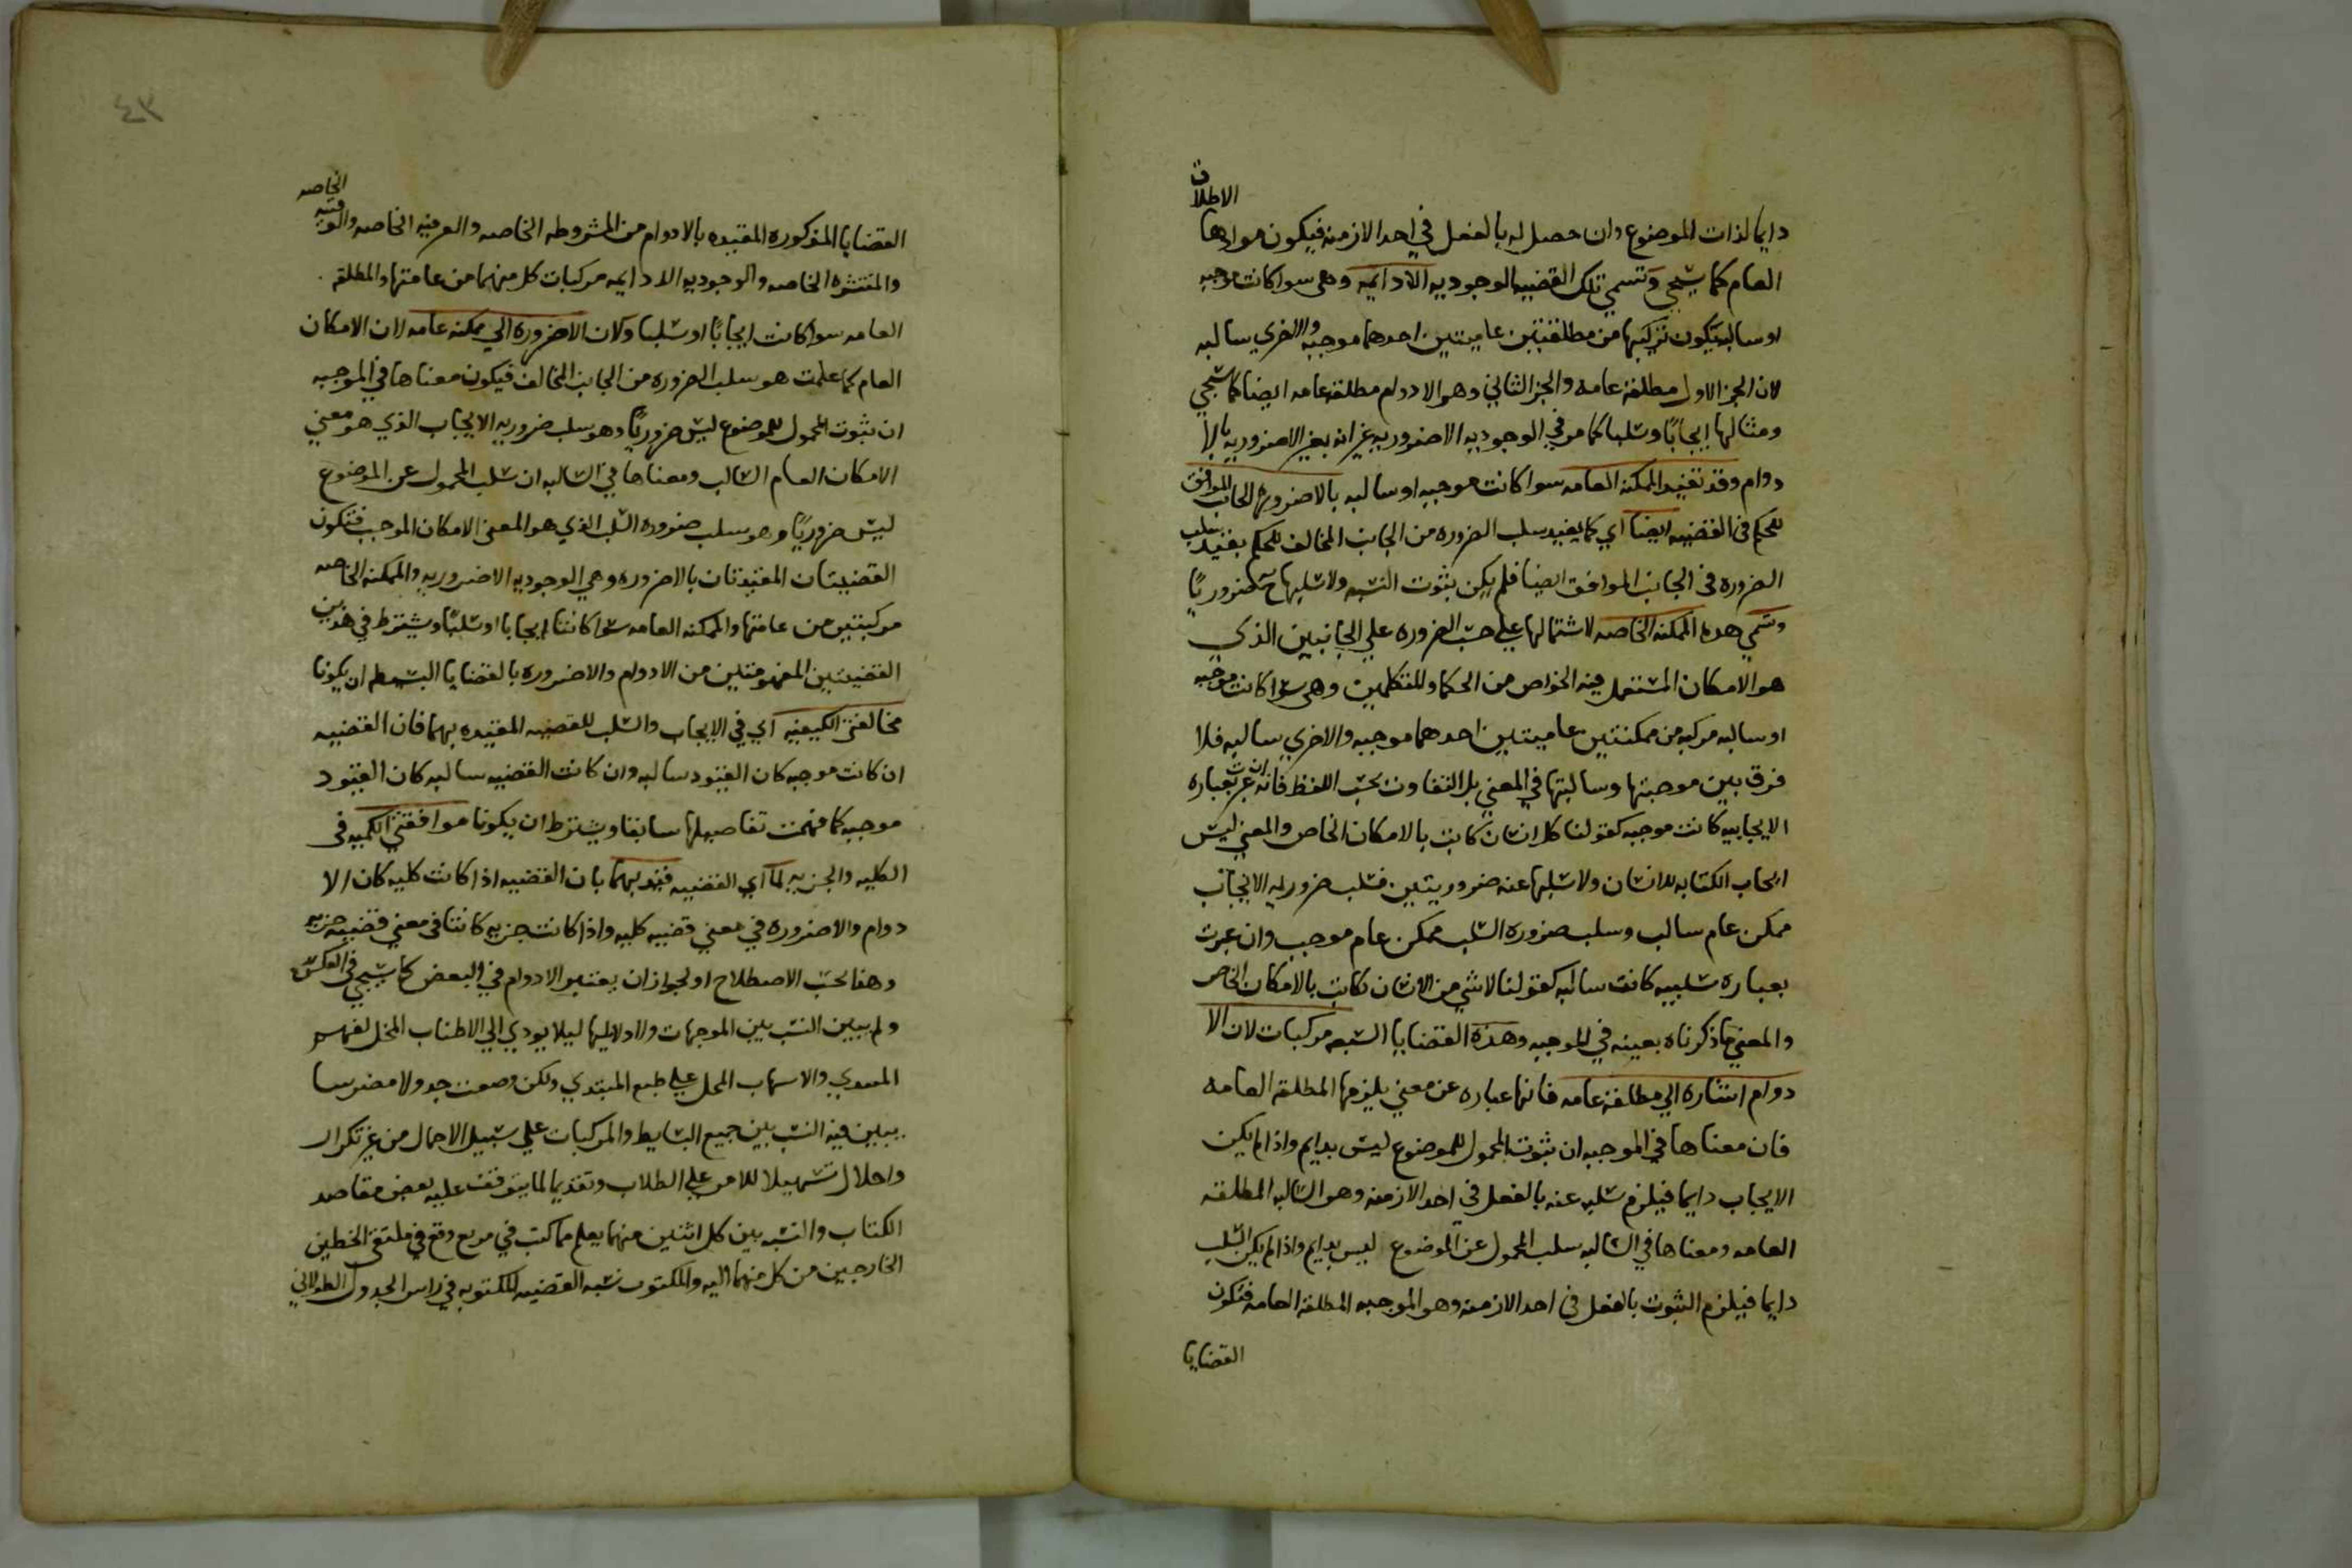 دايما لذات الموضوع وان حصل له بالفعل في احد الازمنه فيكون موادها الاطلاق
العام كما سيجي وتسمي تلك القضيه الوجوديه الادايمه وهي سوا كانت موجبه
او سالبه يكون تركيبها من مطلقتين عامتين احدهما موجبه والاخري سالبه
لان الجز الاول مطلقه عامه والجز الثاني وهو الادوام مطلقه عامه ايضا كما سيجي
ومثالها ايجابًا وسلبا كما مر في الوجوديه الاضروريه غير انه بغير الاضروريه بالا
دوام وقد تقيد الممكنه العامه سوا كانت موجبه او سالبه بالاضروره الجانب الموافق
للحكم في القضيه ايضا اي كما يفيد سلب الضروره من الجانب المخالف للحكم يفيد سلب
الضروره في الجانب الموافق ايضا فلم يكن بثوت النسبه ولا سلبها ح ضروريًا
وتسمي هذه الممكنه الخاصه لاشتمالها علي سلب الضروره علي الجانبين الذي
هو الامكان المستعمل فيه الخواص من الحكما والمتكلمين وهي سوا كانت موجبه
او سالبه مركبه من ممكنتين عامتين احدهما موجبه والاخري سالبه فلا
فرق بين موجبتها وسالبتها في المعني بل التفاوت بحسب اللفظ فانه ان عبرت بعباره
الايجابيه كانت موجبه كقولنا كل انسان كاتب بالامكان الخاص والمعني ليس
ايجاب الكتابه للانسان ولا سلبها عنه ضروريتين فسلب ضروريه الايجاب
ممكن عام سالب وسلب ضروره السلب ممكن عام موجب وان عبرت
بعباره سلبيه كانت سالبه كقولنا لا شي من الانسان بكاتب بالامكان الخاص
والمعني ما ذكرناه بعينه في الموجبه وهذه القضايا السبعه مركبات لان الا
دوام اشاره الي مطلقه عامه فانها عباره عن معني يلزمها المطلقه العامه
فان معناها في الموجبه ان ثبوت المحمول للموضوع ليس بدايم واذا لم يكن
الايجاب دايما فيلزم سلبه عنه بالفعل في احد الازمنه وهو السالبه المطلقه
العامه ومعناها في السالبه سلب المحمول عن الموضوع ليس بدايم واذا لم يكن السلب
دايما فيلزم الثبوت بالفعل في احد الازمنه وهو الموجبه المطلقه العامه فتكون
القضايا
٤٣
القضايا المذكوره المقيده بالادوام من المشروطه الخاصه والعرفيه الخاصه والوقتيه الخاصه
والمنتشره الخاصه والوجوديه الادايمه مركبات كل منهما من عامتها والمطلقه
العامه سوا كانت ايجابًا او سلبا ولان الاضروره الي ممكنه عامه لان الامكان
العام كما علمت هو سلب الضروره من الجانب المخالف فيكون معناها في الموجبه
ان ثبوت المحمول للموضوع ليس ضروريًا وهو سلب ضروريه الايجاب الذي هو معني
الامكان العام السالب ومعناها في السالبه ان سلب المحمول عن الموضوع
ليس ضروريًا وهو سلب ضروره السلب الذي هو المعني الامكان الموجب فتكون
القضيتان المقيدتان بالاضروره وهي الوجوديه الاضروريه والممكنه الخاصه
مركبتين من عامتها والممكنه العامه سوا كانتا ايجابا او سلبًا ويشترط في هذين
القضيتين المفهومتين من الادوام والاضروره بالقضايا البسيطه ان يكونا
مخالفتي الكيفيه اي في الايجاب والسلب للقضيه المقيده بهما فان القضيه
ان كانت موجبه كان القيود سالبه وان كانت القضيه سالبه كان القيود
موجبه كما فهمت تفاصيلها سابقا ويشترط ان يكونا موافقتي الكميه في
الكليه والجزيه لما اي القضيه قيد بهما بان القضيه اذا كانت كليه كان الا
دوام والاضروره في معني قضيه كليه واذا كانت جزيه كانتا في معني قضيه جزيه
وهذا بحسب الاصطلاح او لجواز ان يعتبر الادوام في البعض كما سيجي في العكس
ولم يبين النسب بين الموجهات ولا دلايلها ليلا يودي الي الاطناب المخل لفهم
المبتدي والاسهاب الممل علي طبع المبتدي ولكن وضعت جدولا مضرسا
يبين فيه النسب بين جميع البسايط والمركبات علي سبيل الاجمال من غير تكرار
واخلال تسهيلا للامر علي الطلاب وتقديما لما يتوقف عليه بعض مقاصد
الكتاب والنسبه بين كل اثنين منهما يعلم مما كتب في مربع وقع في ملتقي الخطين
الخارجين من كل منهما اليه والمكتوب نسبه القضيه المكتوبه في راس الجدول الطولاني